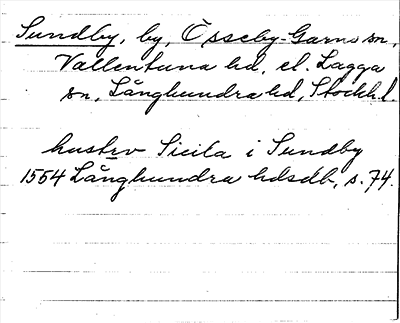 Sundby, by, Össeby-Garns sn,
Vallentuna hd, el. Lagga
sn, Långhundra hd, Stockh. l.
hustrv Sicila i Sundby
1554 Långhundra hdsdb, s. 74.